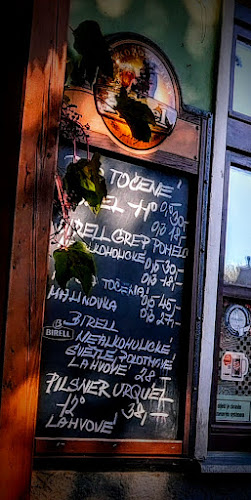 TOČENÉ
11° 0,5 30-
0,3 18-
BIRELL GREP POMELO
NEALKOHOLICKÉ
0,5 30-
0,3 18-
TOČENÁ
MALINOVKA 0,5 45-
0,3 27-
BIRELL
BIRELL
NEALKOHOLICKÉ
SVĚTLÉ POLOTMAVÉ
LAHVOVÉ 28
PILSNER URQUEL
12° 38
LAHVOVÉ